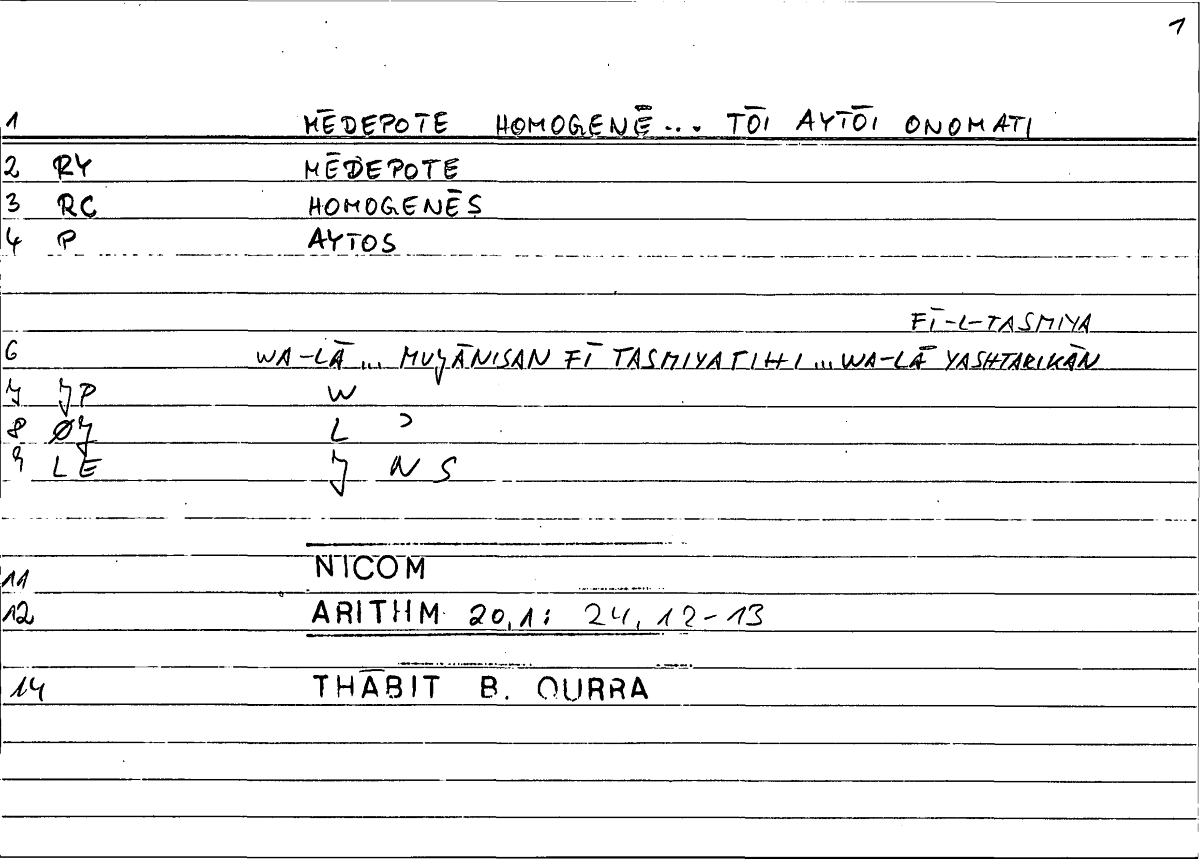 1
1 MĒDEPOTE HOMOGENĒ... TŌI AYTŌI ONOMATI
2 RY MĒDEPOTE
3 RC HOMOGENĒS
4 P AYTOS
FĪ-L-TASMIYA
6 WA-LĀ... MUJĀNISAN FĪ TASMIYATIHI... WA-LĀ YASHTARIKĀN
7 JP W
8 ØJ L ʾ
9 LE J N S
11 NICOM
12 ARITHM 20,1: 24,12-13
14 THĀBIT B. QURRA